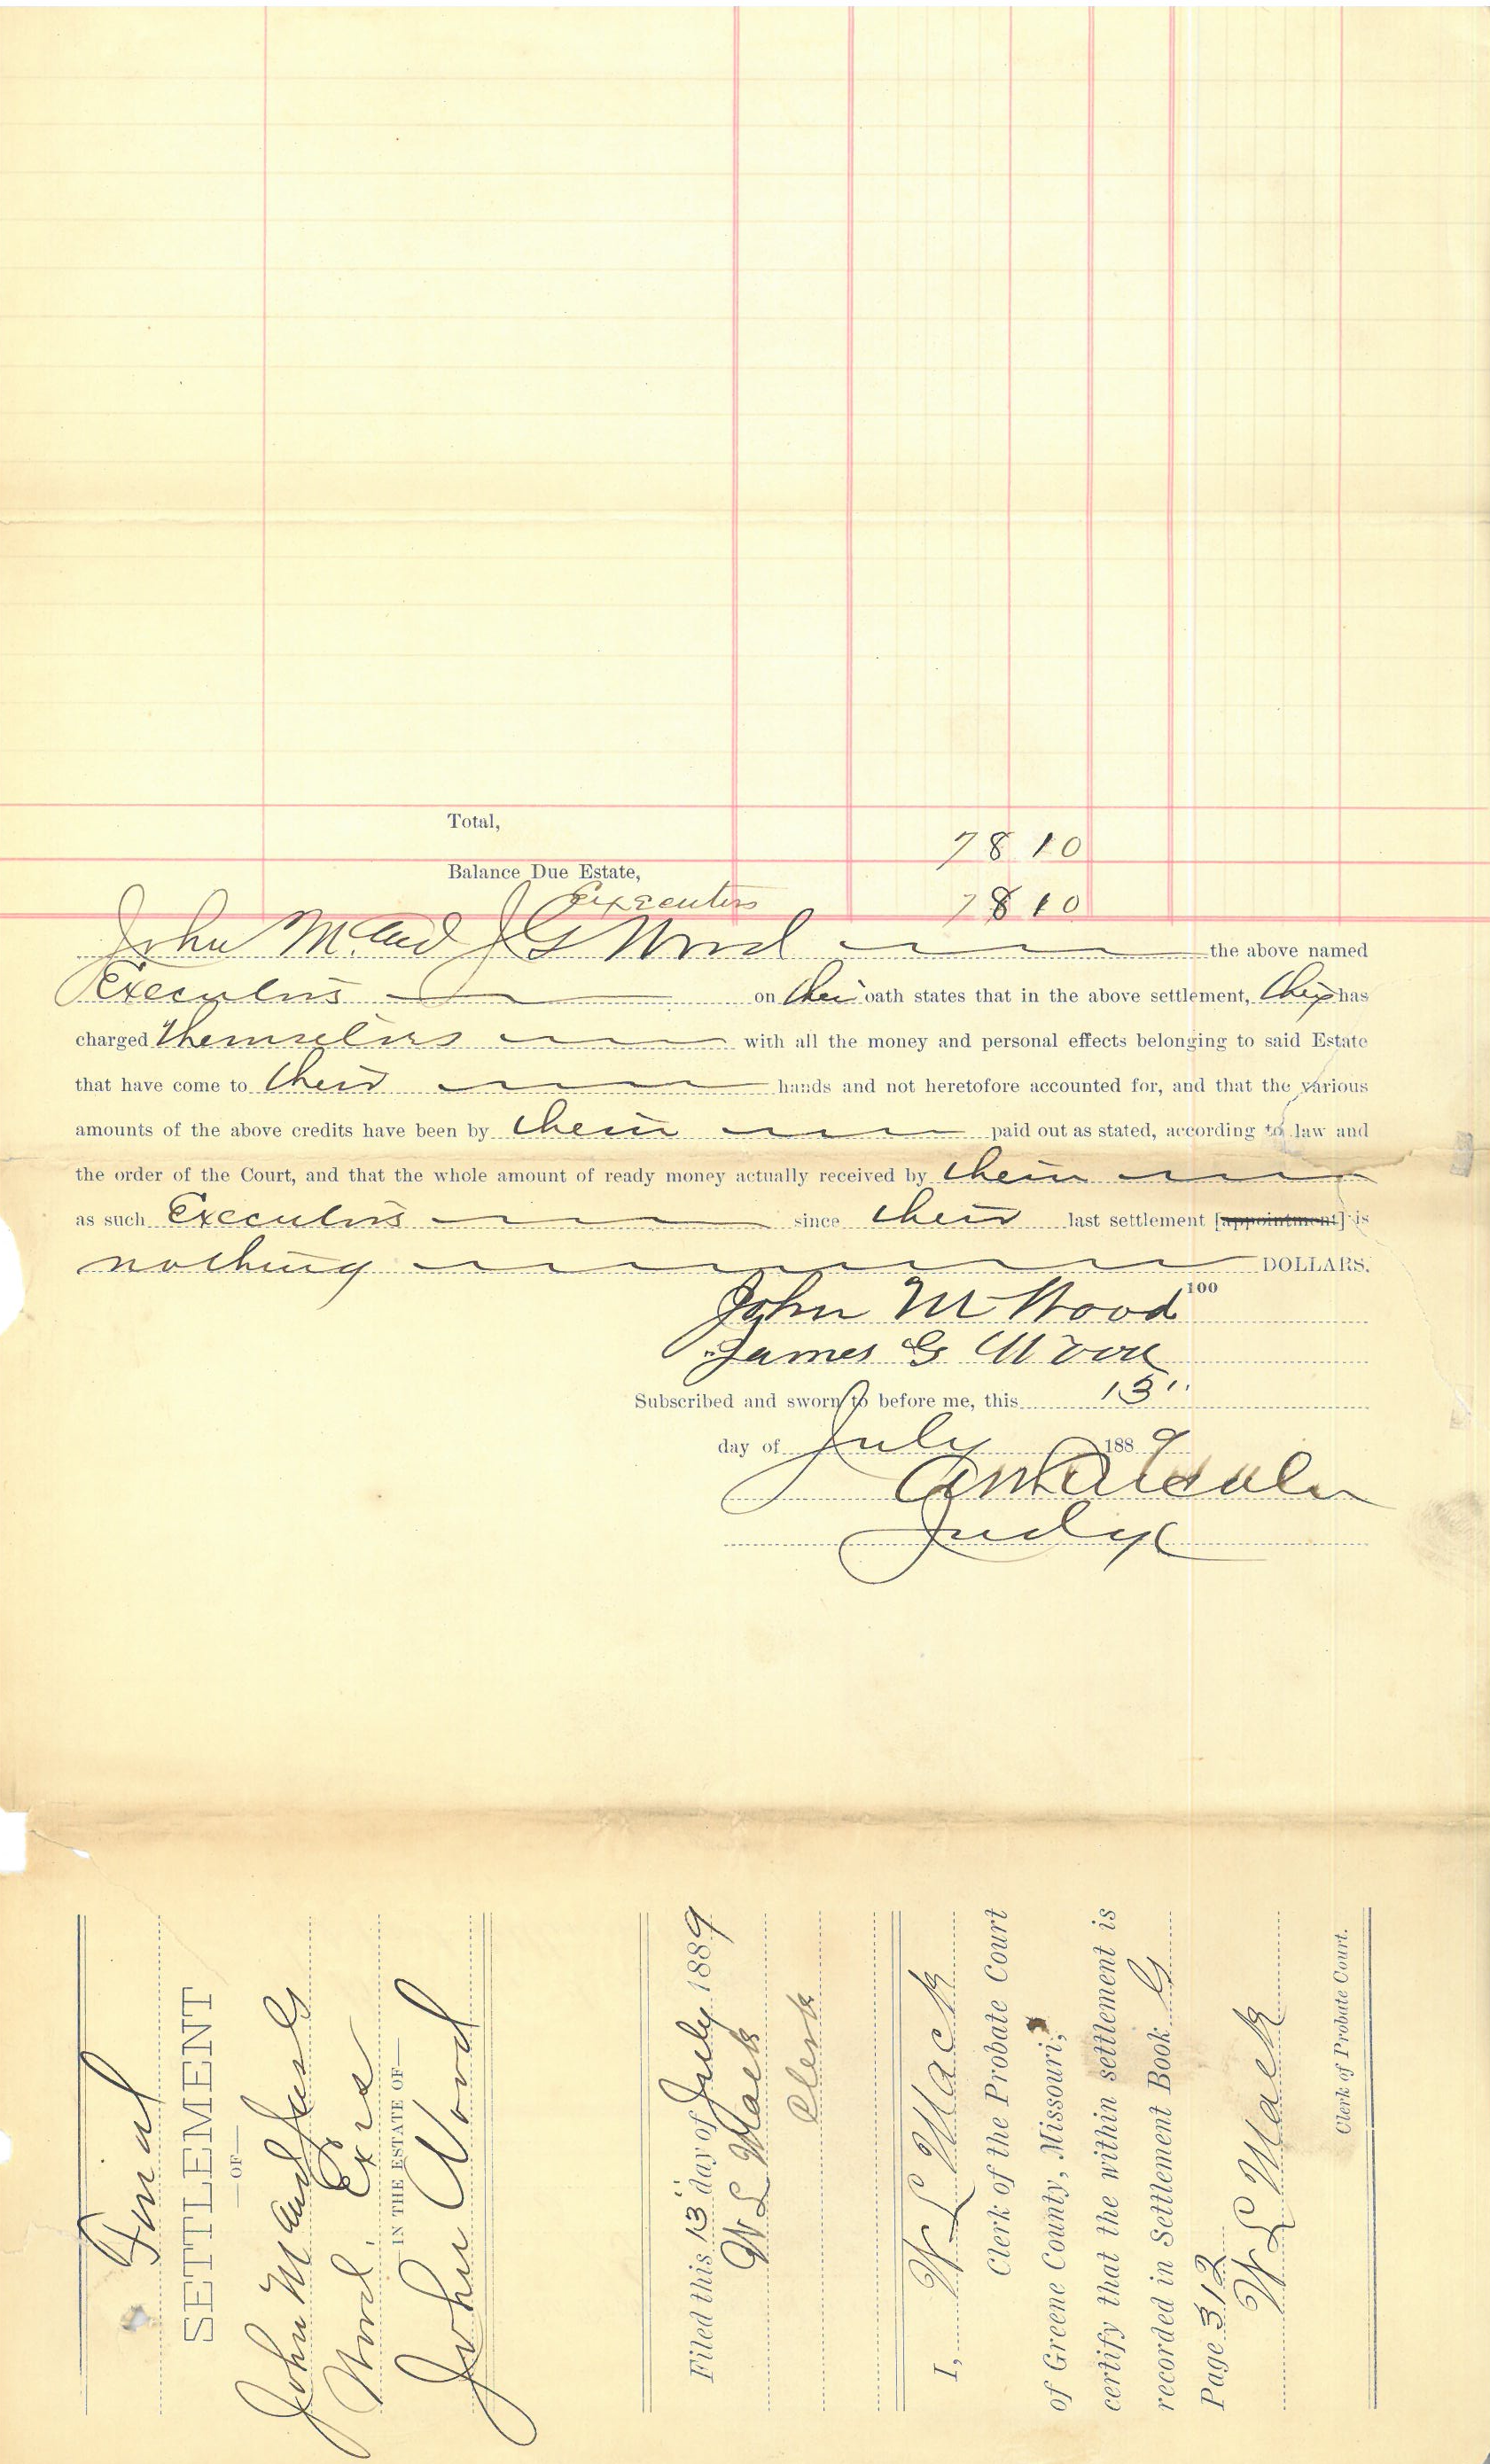 Total,
78 10
Balance Due Estate,
Executors
78 10
John M. and J G Wood the above named
Executors on their oath states that in the above settlement, they has
charged themselves with all the money and personal effects belonging to said Estate
that have come to their hands and not heretofore accounted for, and that the various
amounts of the above credits have been by them paid out as stated, according to law and
the order of the Court, and that the whole amount of ready money actually received by them
as such Executors since their last settlement [appointment] is
nothing DOLLARS.
100
John M Wood
James G Wood
Subscribed and sworn to before me, this 13"
day of July 1889
Judge
Final
SETTLEMENT
—OF—
John M and Jas G
Wood Exrs
—IN THE ESTATE OF—
John Wood
Filed this 13" day of July 1889
W L Mack
Clerk
I, W L Mack
Clerk of the Probate Court
of Greene County, Missouri,
certify that the within settlement is
recorded in Settlement Book G
Page 312
W L Mack
Clerk of Probate Court.